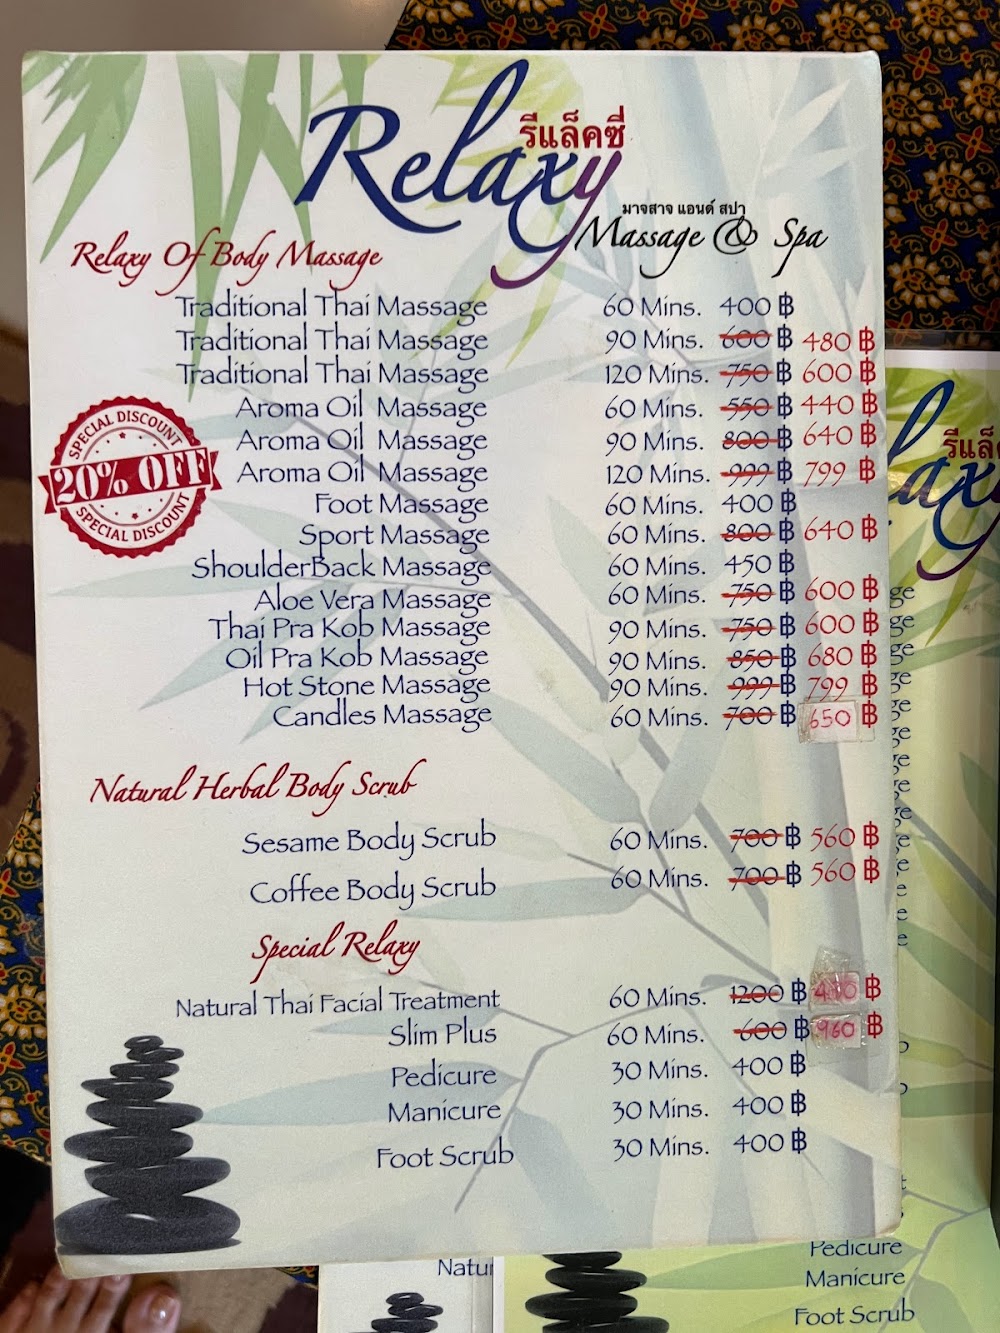 Relaxy
รีแล็คซี่
มาจสาจ แอนด์ สปา
Massage & Spa
Relaxy Of Body Massage
Traditional Thai Massage 60 Mins. 400 ฿
Traditional Thai Massage 90 Mins. 600 ฿ 480 ฿
Traditional Thai Massage 120 Mins. 750 ฿ 600 ฿
Aroma Oil Massage 60 Mins. 550 ฿ 440 ฿
Aroma Oil Massage 90 Mins. 800 ฿ 640 ฿
Aroma Oil Massage 120 Mins. 999 ฿ 799 ฿
Foot Massage 60 Mins. 400 ฿
Sport Massage 60 Mins. 800 ฿ 640 ฿
ShoulderBack Massage 60 Mins. 450 ฿
Aloe Vera Massage 60 Mins. 750 ฿ 600 ฿
Thai Pra Kob Massage 90 Mins. 750 ฿ 600 ฿
Oil Pra Kob Massage 90 Mins. 850 ฿ 680 ฿
Hot Stone Massage 90 Mins. 999 ฿ 799 ฿
Candles Massage 60 Mins. 700 ฿ 650 ฿
SPECIAL DISCOUNT
20% OFF
SPECIAL DISCOUNT
Natural Herbal Body Scrub
Sesame Body Scrub 60 Mins. 700 ฿ 560 ฿
Coffee Body Scrub 60 Mins. 700 ฿ 560 ฿
Special Relaxy
Natural Thai Facial Treatment 60 Mins. 1200 ฿ 480 ฿
Slim Plus 60 Mins. 600 ฿ 960 ฿
Pedicure 30 Mins. 400 ฿
Manicure 30 Mins. 400 ฿
Foot Scrub 30 Mins. 400 ฿
Natur
Pedicure
Manicure
Foot Scrub